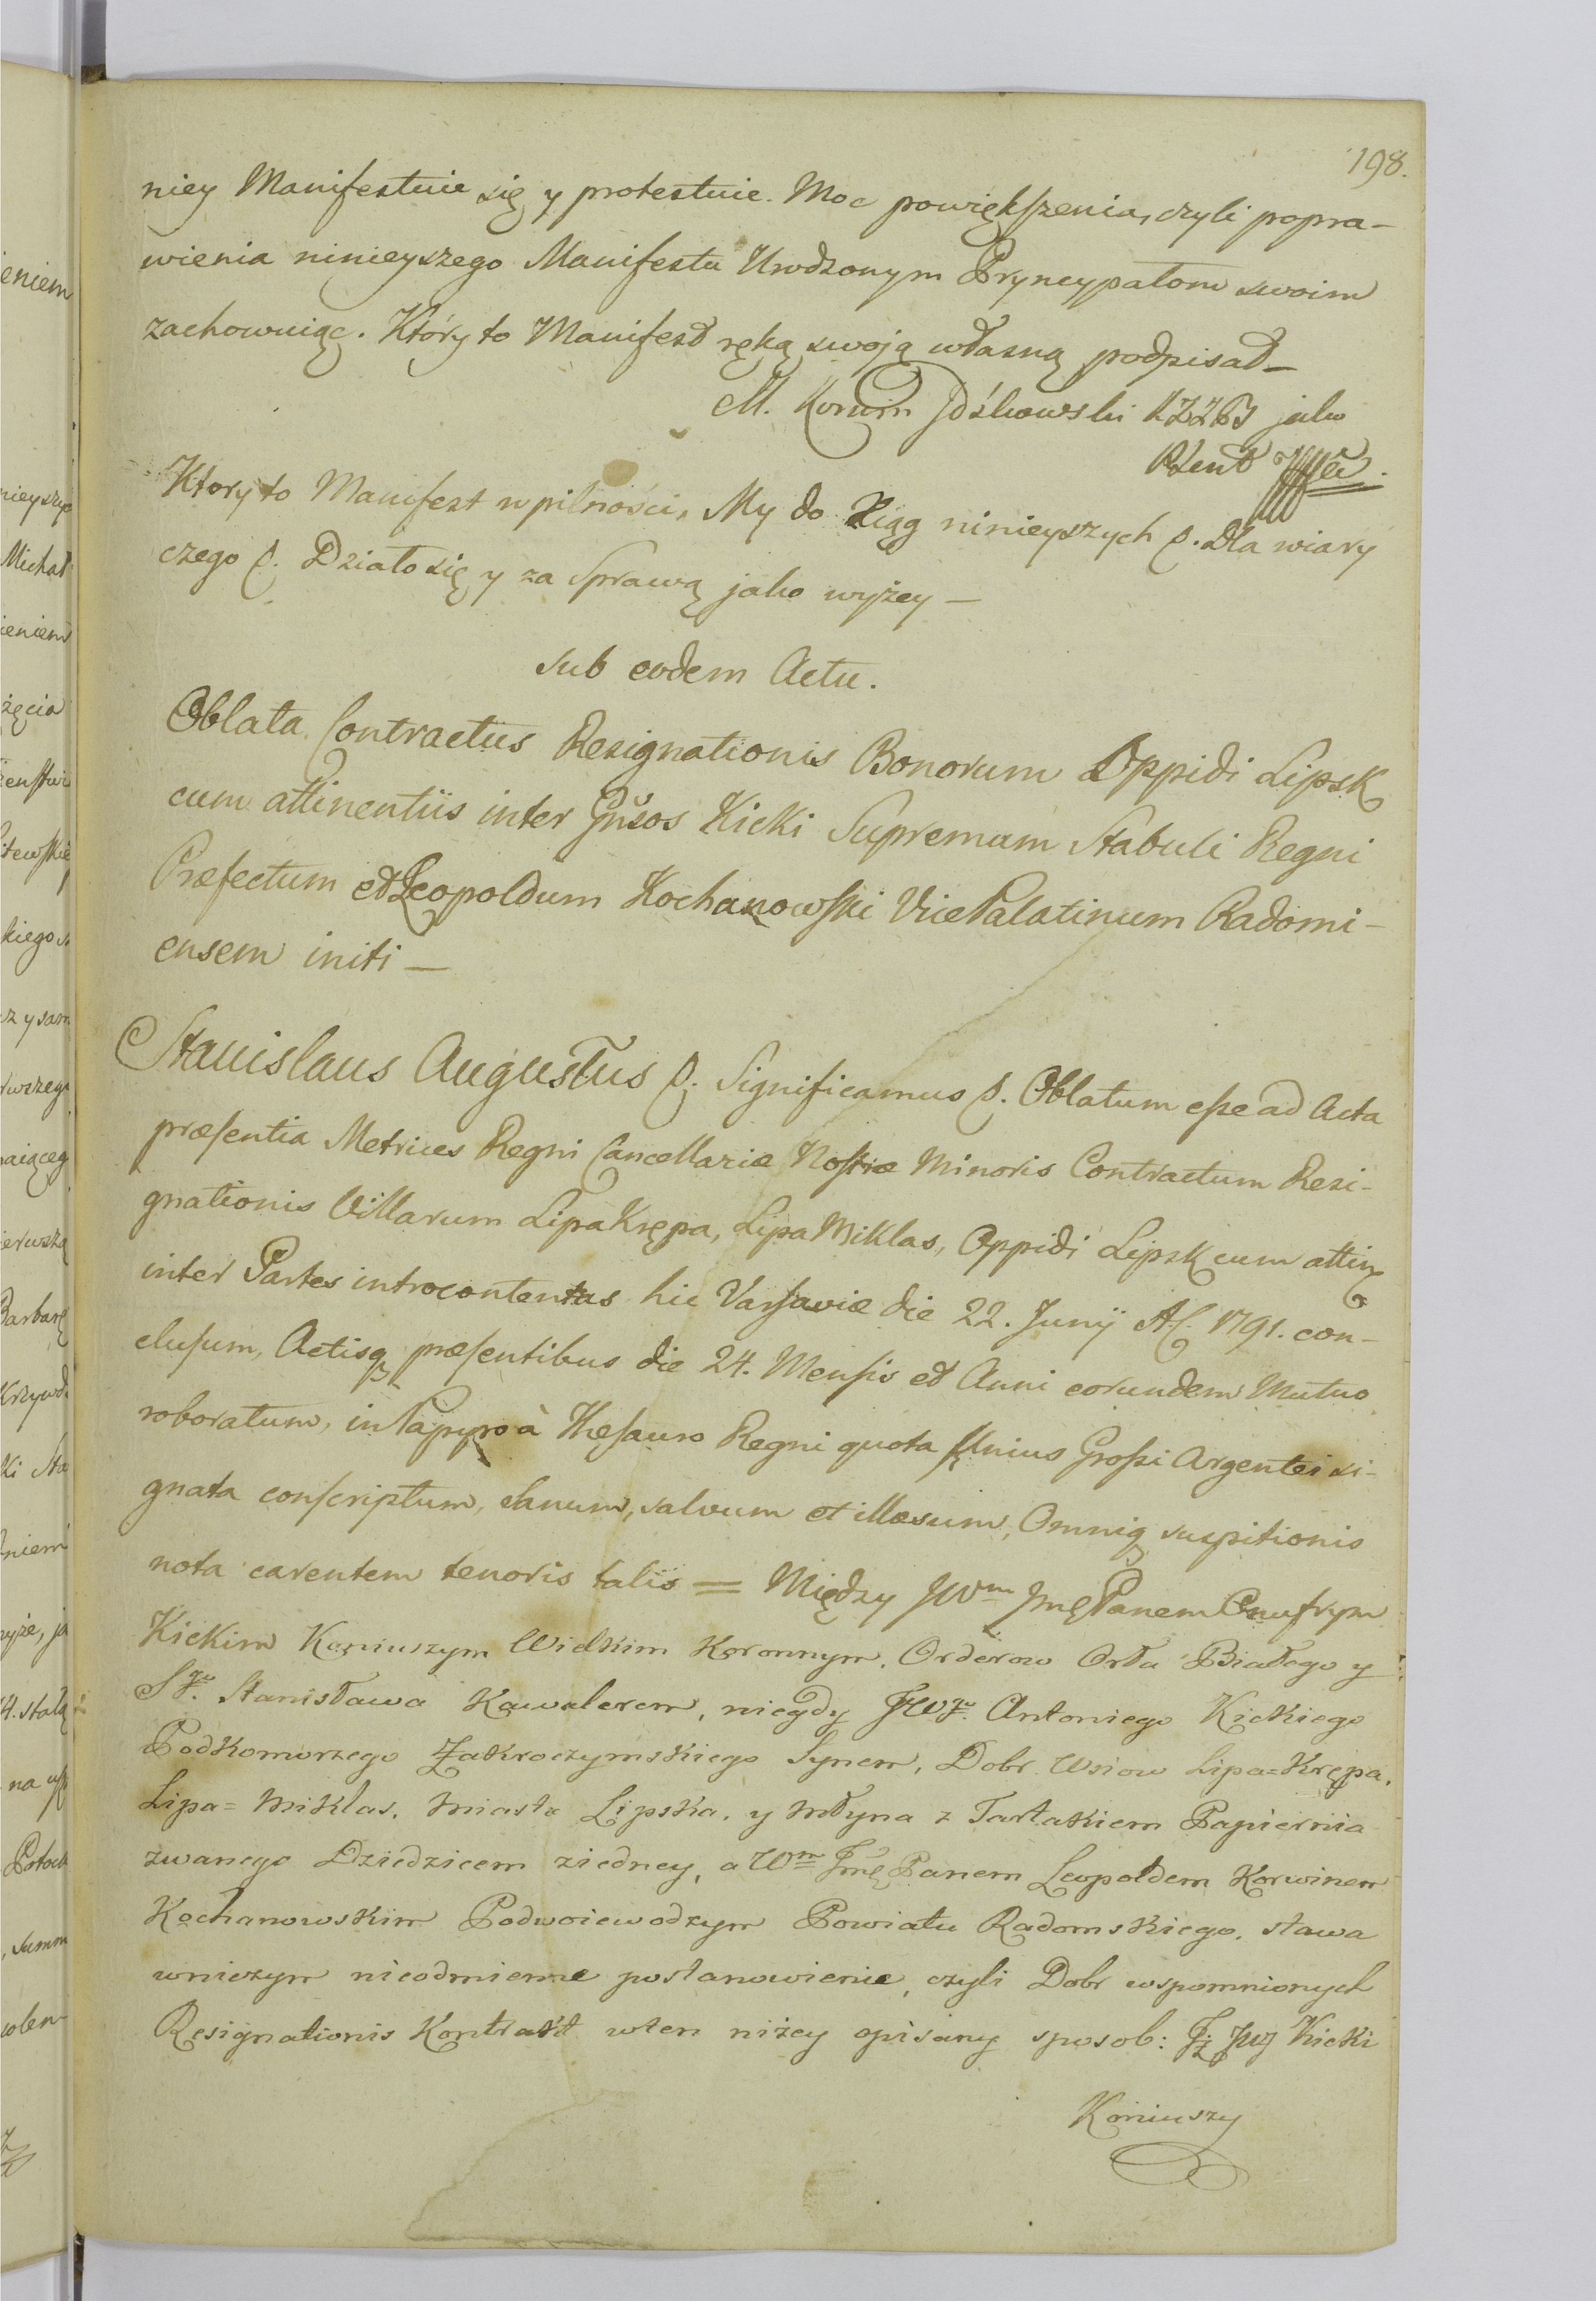 198.
niey Manifestuie się y protestuie. Moc powiększenia, czyli popra-
wienia ninieyszego Manifestu Urodzonym Pryncypałom swoim
zachowuiąc. Który to Manifest ręką swoją własną podpisał –
M. Korwin jako
Plent
Ktory to Manifest w pilności, My do Xiąg ninieyszych p. Dla wiary
czego p. Działo się y za Sprawą jako wyżey –
Sub eodem Actu.
Oblata Contractus Resignationis Bonorum Oppidi Lipsk
cum attinentiis inter Gn̄sos Kicki Supremum Stabuli Regni
Præfectum et Leopoldum Kochanowski Vice Palatinum Radomi-
ensem initi –
Stanislaus Augustus p. Significamus p. Oblatum esse ad Acta
præsentia Metrices Regni Cancellariæ Nostræ Minoris Contractum Resi-
gnationis Villarum Lipa Krępa, Lipa Miklas, Oppidi Lipsk cum attin
inter Partes introcontentas hic Varsaviæ die 22. Junÿ A.C. 1791. con-
clusum, Actisq præsentibus die 24. Mensis et Anni eorundem Mutuo
roboratum, in Papyro à Thesauro Regni quota Unius Grossi Argentei si-
gnata conscriptum, sanum, salvum et illæsum, Omniq suspitionis
nota carentem tenoris talis = Między JWm Jmę Panem Onufrym
Kickim Koniuszym Wielkim Koronnym, Orderow Orła Białego y
Sgo. Stanisława Kawalerem, niegdy JWgo. Antoniego Kickiego
Podkomorzego Zakroczymskiego Synem, Dobr Wsiow Lipa=Krępa,
Lipa=Miklas, Miasta Lipska, y Młyna z Tartakiem Papiernia
zwanego Dziedzicem ziedney, a Wm Jmę Panem Leopoldem Korwinem
Kochanowskim Podwoiewodzym Powiatu Radomskiego, stawa
wniczym nieodmienne postanowienie, czyli Dobr wspomnionych
Resignationis Kontrakt wten niżey opisany sposob: Iż JW Kicki
Koniuszy